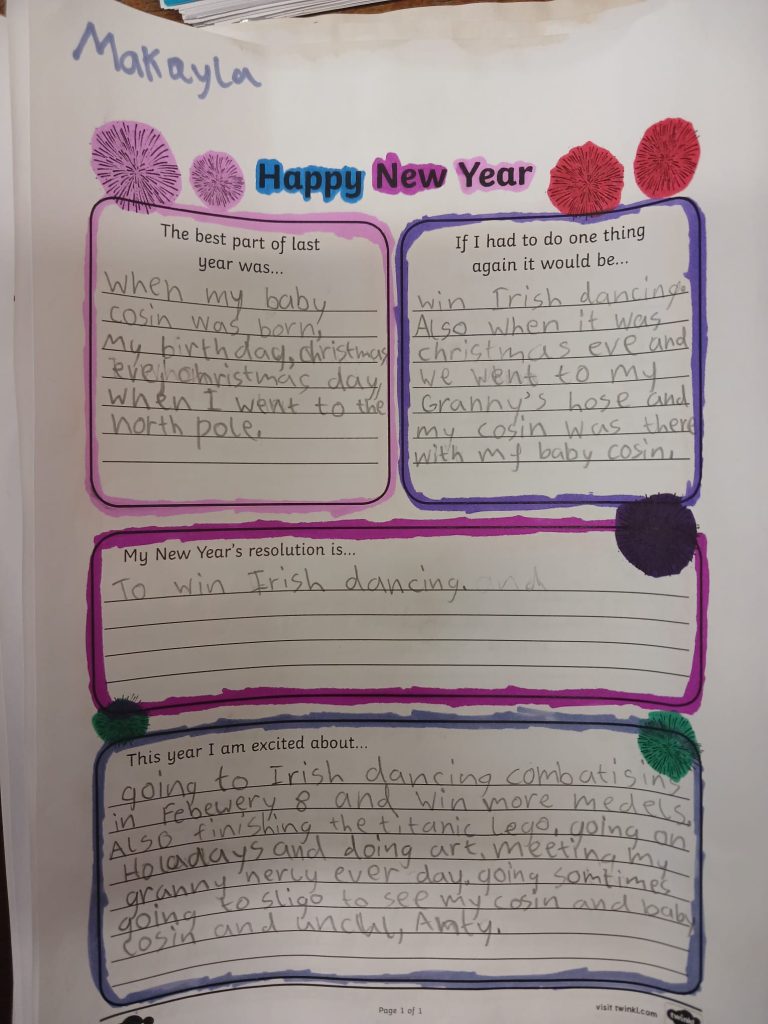 Makayla
Happy New Year
The best part of last
year was...
when my baby
cosin was born,
My birthday, christmas
eve, christmas day,
when I went to the
north pole.
If I had to do one thing
again it would be...
win Irish dancing.
Also when it was
christmas eve and
we went to my
Granny's hose and
my cosin was there
with my baby cosin.
My New Year's resolution is...
To win Irish dancing. and
This year I am excited about...
going to Irish dancing combatisins
in Febewery 8 and win more medels.
Also finishing the titanic Lego, going on
Holadays and doing art, meeting my
granny nerly ever day. going somtimes
going to sligo to see my cosin and baby
cosin and, Anty.
Page 1 of 1
visit twinkl.com
twinkl